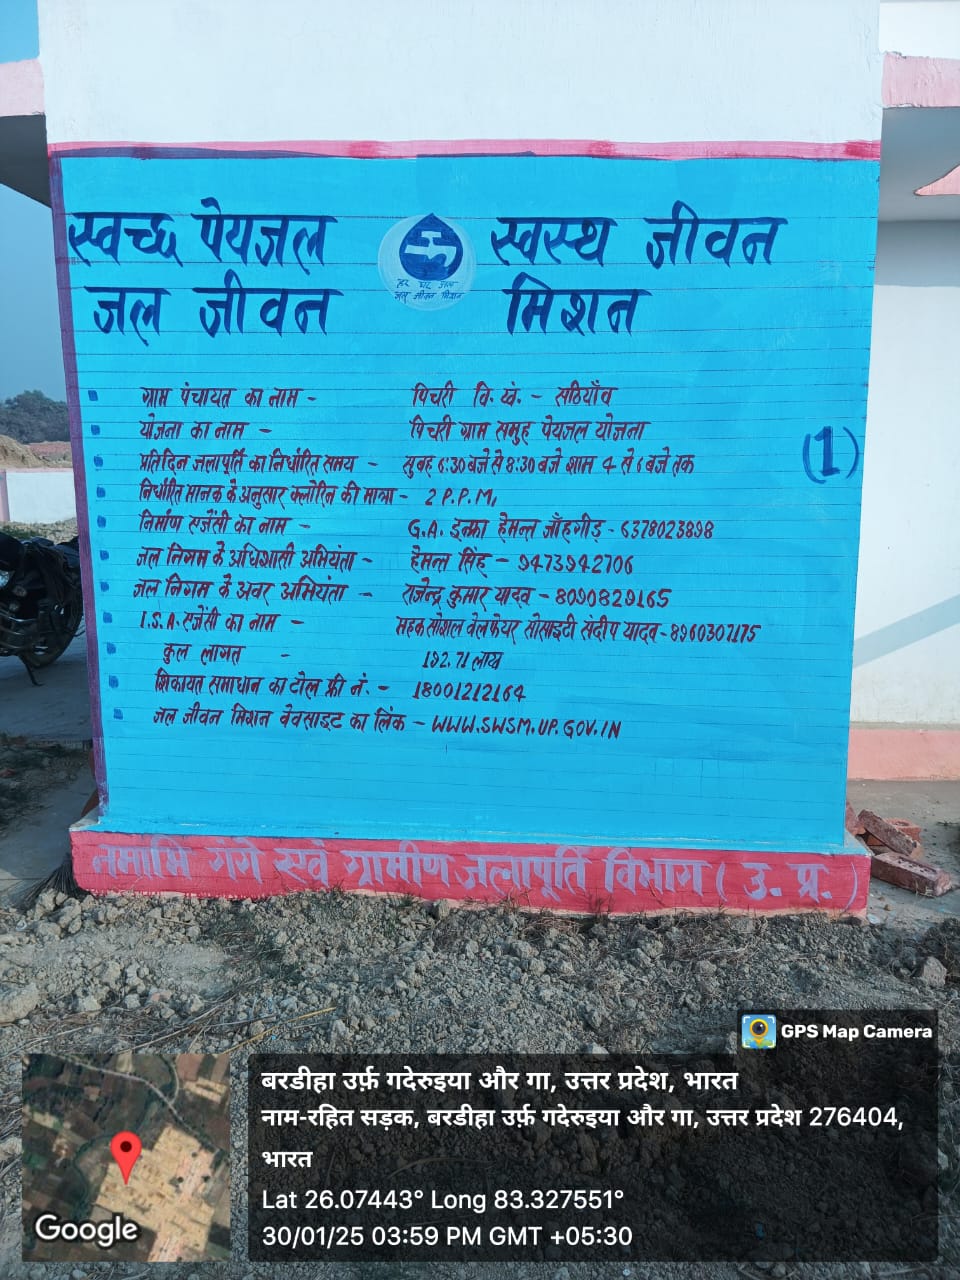 स्वच्छ पेयजल स्वस्थ जीवन
हर घर जल
जल जीवन मिशन
जल जीवन मिशन
ग्राम पंचायत का नाम - पिचरी वि. खं. - सठियाँव
योजना का नाम - पिचरी ग्राम समुह पेयजल योजना
(1)
प्रतिदिन जलापूर्ति का निर्धारित समय - सुबह 6:30 बजे से 8:30 बजे शाम 4 से 6 बजे तक
निर्धारित मानक के अनुसार क्लोरिन की मात्रा - 2 P.P.M.
निर्माण एजेंसी का नाम - G.A. इन्फ्रा हेमन्त जाँहगीड़ - 6378023898
जल निगम के अधिशासी अभियंता - हेमन्त सिंह - 9473942706
जल निगम के अवर अभियंता - राजेन्द्र कुमार यादव - 8090829165
I.S.A. एजेंसी का नाम - सहक सोशल वेलफेयर सोसाइटी संदीप यादव - 8960307175
कुल लागत - 192.71 लाख
शिकायत समाधान का टोल फ्री नं. - 18001212164
जल जीवन मिशन वेवसाइट का लिंक - WWW.SWSM.UP.GOV.IN
नमामि गंगे एवं ग्रामीण जलापूर्ति विभाग ( उ. प्र. )
GPS Map Camera
बरडीहा उर्फ़ गदेरुइया और गा, उत्तर प्रदेश, भारत
नाम-रहित सड़क, बरडीहा उर्फ़ गदेरुइया और गा, उत्तर प्रदेश 276404,
भारत
Lat 26.07443° Long 83.327551°
30/01/25 03:59 PM GMT +05:30
Google